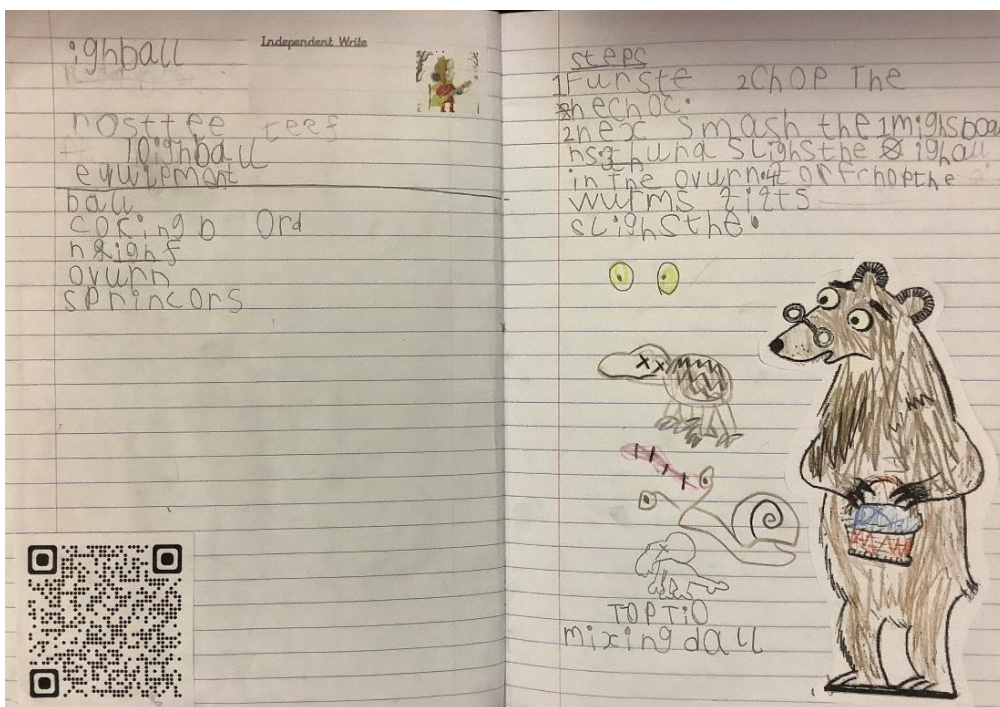 Independent Write
ighball
nosttee teef
10ighball
equipment
ball
coking b ord
ovurn
sprincors
steps
1Furste 2Chop The
hechoc.
2nex smash the 1mighsboa
und slighsthe ighall
in the ovurn orfchopthe
wurms
slighsthe.
TOPTiO
mixingdall